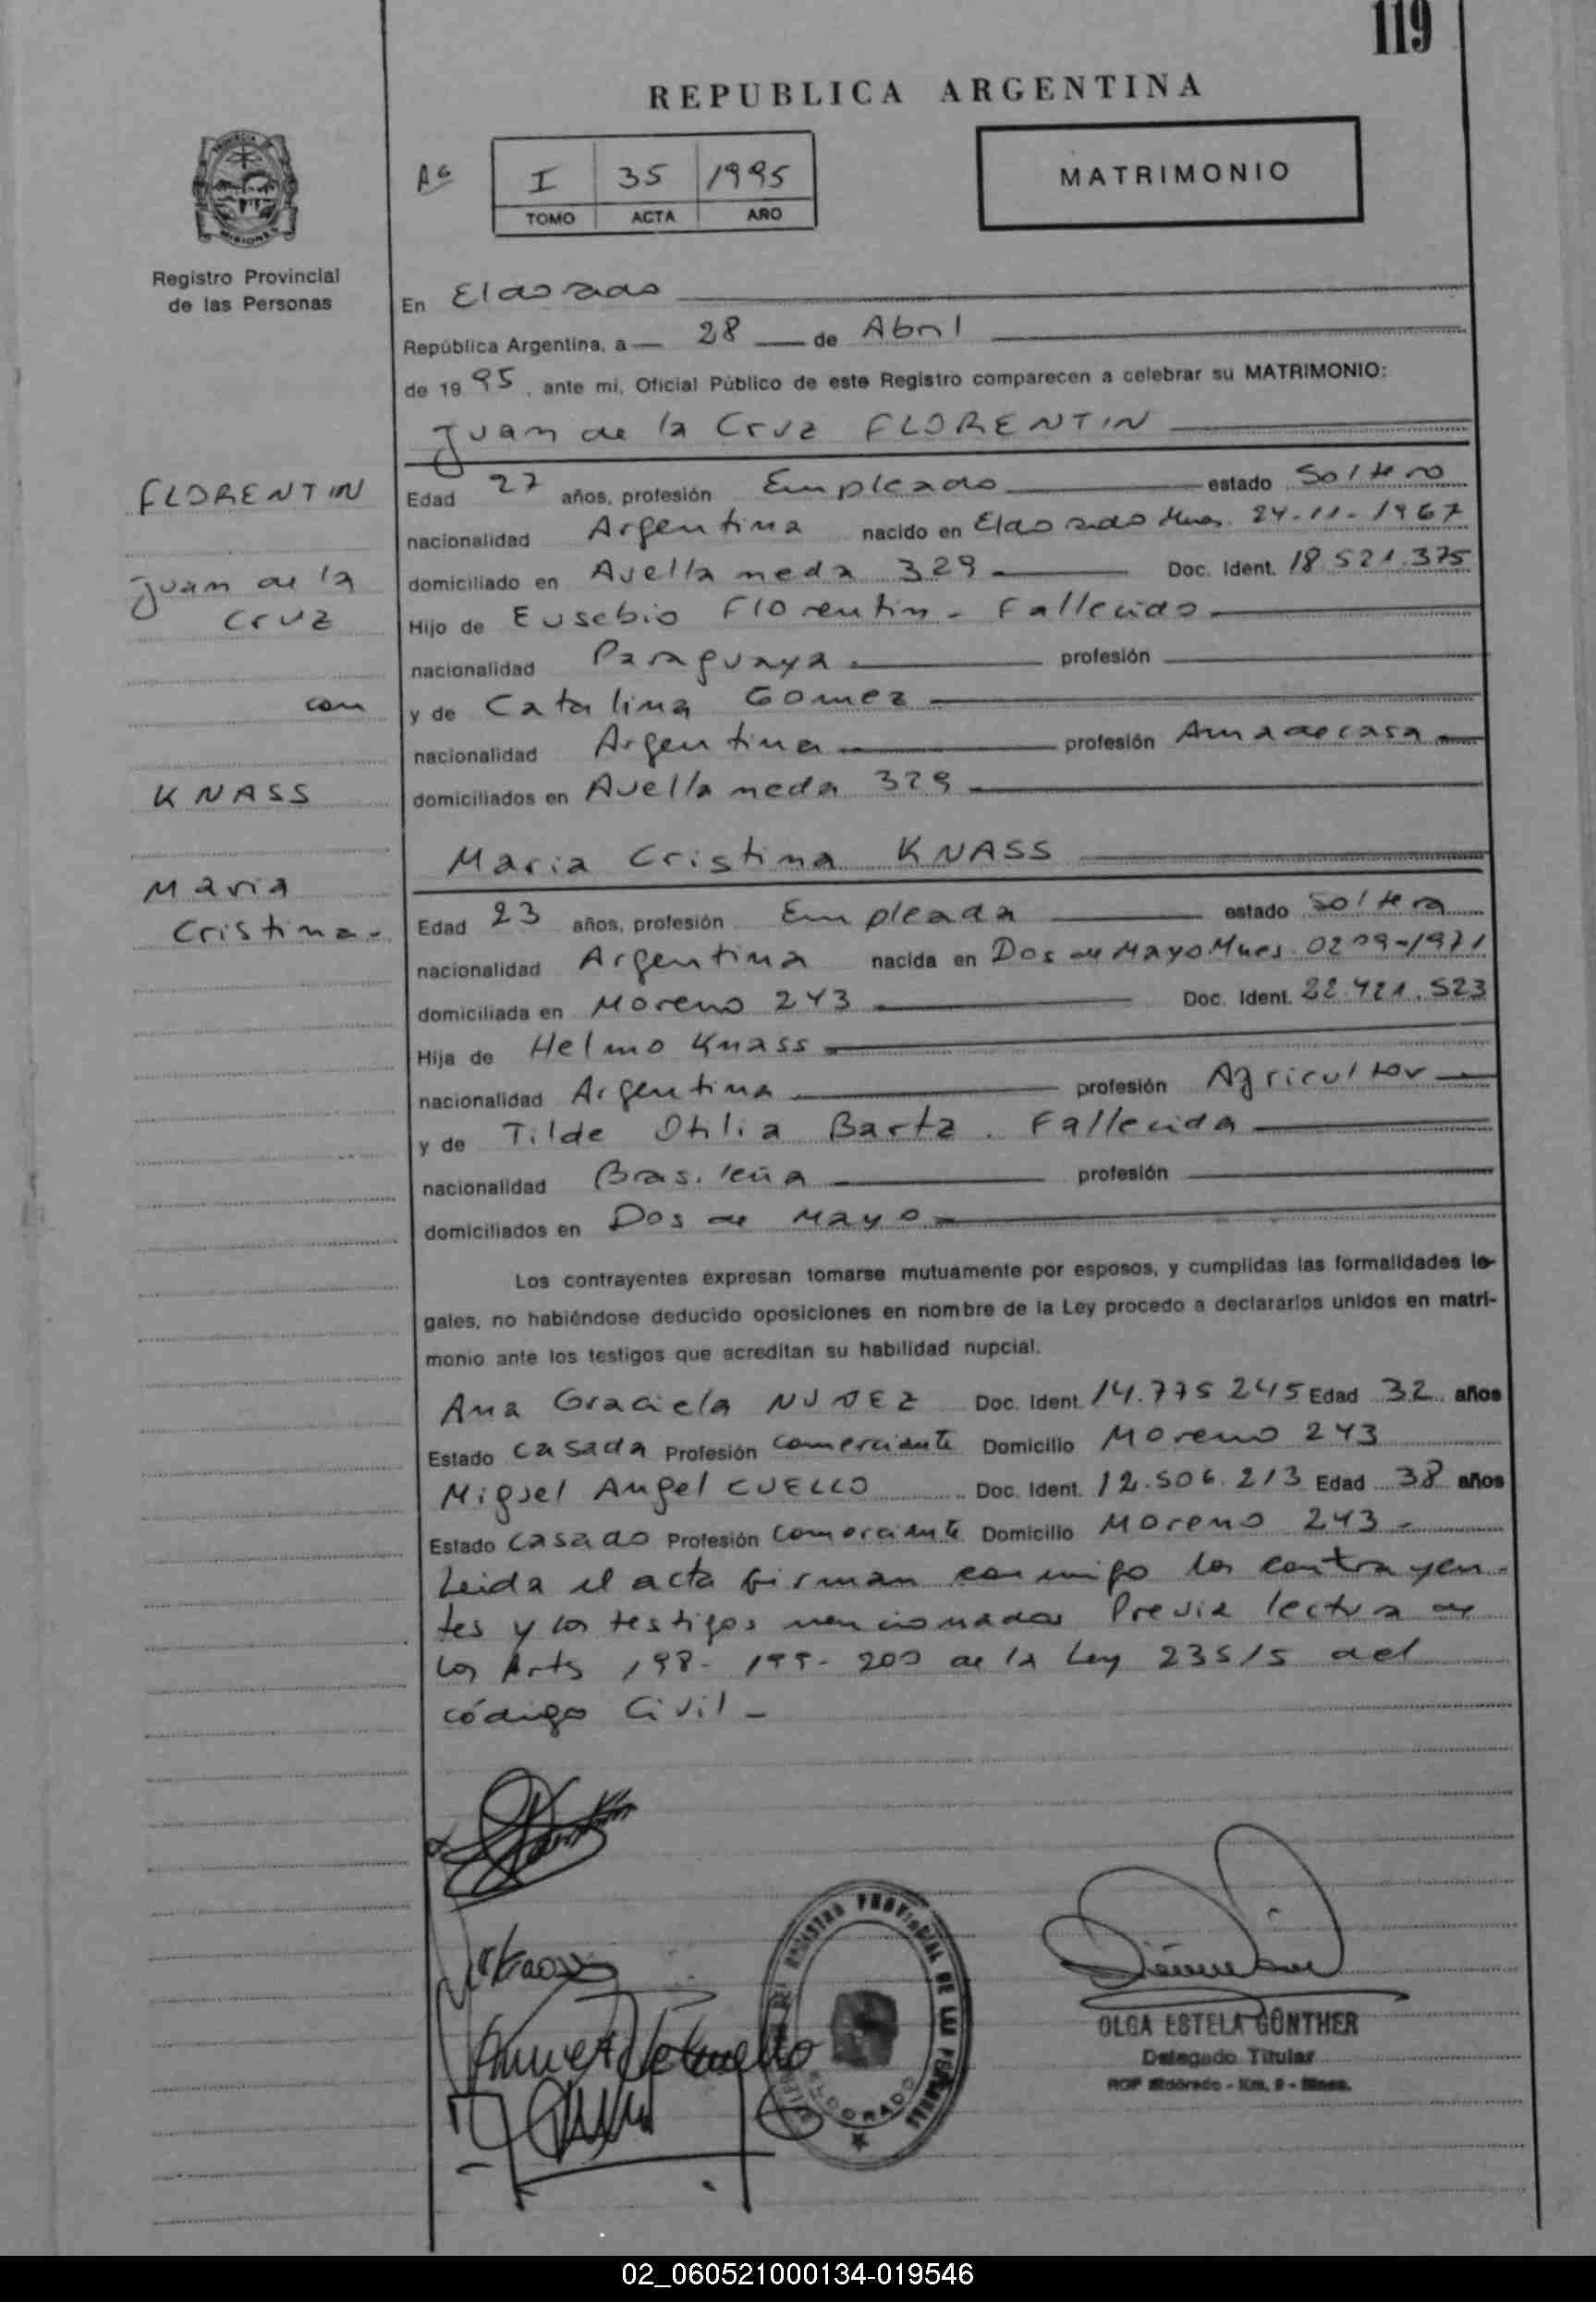 119
REPUBLICA ARGENTINA
I 35 1995
TOMO ACTA AÑO
MATRIMONIO
PROVINCIA
MISIONES
Registro Provincial
de las Personas
En Eldorado
República Argentina, a 28 de Abril
de 1995, ante mi, Oficial Público de este Registro comparecen a celebrar su MATRIMONIO:
Juan de la Cruz FLORENTIN
FLORENTIN
Juan de la
Cruz
con
KNASS
Maria
Cristina-
Edad 27 años, profesión Empleado estado Soltero
nacionalidad Argentina nacido en Eldorado Mnes. 24-11-1967
domiciliado en Avellaneda 329 Doc. Ident. 18.521.375
Hijo de Eusebio Florentin - Fallecido
nacionalidad Paraguaya profesión
y de Catalina Gomez
nacionalidad Argentina profesión Ama de casa
domiciliados en Avellaneda 329
Maria Cristina KNASS
Edad 23 años, profesión Empleada estado Soltera
nacionalidad Argentina nacida en Dos de Mayo Mnes. 02-09-1971
domiciliada en Moreno 243 Doc. Ident. 22.421.523
Hija de Helmo Knass
nacionalidad Argentina profesión Agricultor
y de Tilde Otilia Bartz. Fallecida
nacionalidad Brasileña profesión
domiciliados en Dos de Mayo
Los contrayentes expresan tomarse mutuamente por esposos, y cumplidas las formalidades le-
gales, no habiéndose deducido oposiciones en nombre de la Ley procedo a declararlos unidos en matri-
monio ante los testigos que acreditan su habilidad nupcial.
Ana Graciela NUÑEZ Doc. Ident. 14.775.245 Edad 32 años
Estado Casada Profesión Comerciante Domicilio Moreno 243
Miguel Angel CUELLO Doc. Ident. 12.506.213 Edad 38 años
Estado Casado Profesión Comerciante Domicilio Moreno 243-
Leida el acta firman conmigo los contrayen-
tes y los testigos mencionados Previa lectura de
los Arts 198- 199- 200 de la Ley 23515 del
código Civil-
REGISTRO PROVINCIAL DE LAS PERSONAS
ELDORADO
OLGA ESTELA GÜNTHER
Delegado Titular
RCP Eldorado - Km. 9 - Mnes.
02_060521000134-019546